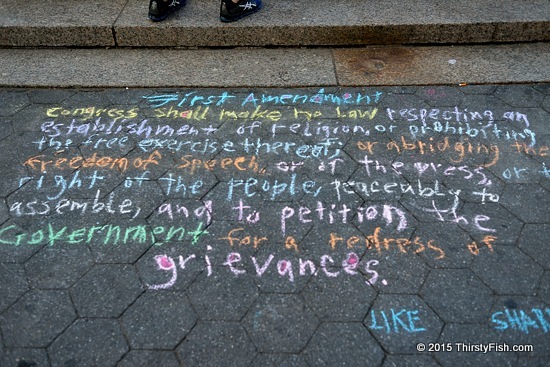 First Amendment
Congress shall make no law respecting an
establishment of religion, or prohibiting
the free exercise thereof; or abridging the
freedom of speech, or of the press, or t
right of the people, peaceably to
assemble, and to petition the
Government for a redress of
grievances.
LIKE SHAR
© 2015 ThirstyFish.com